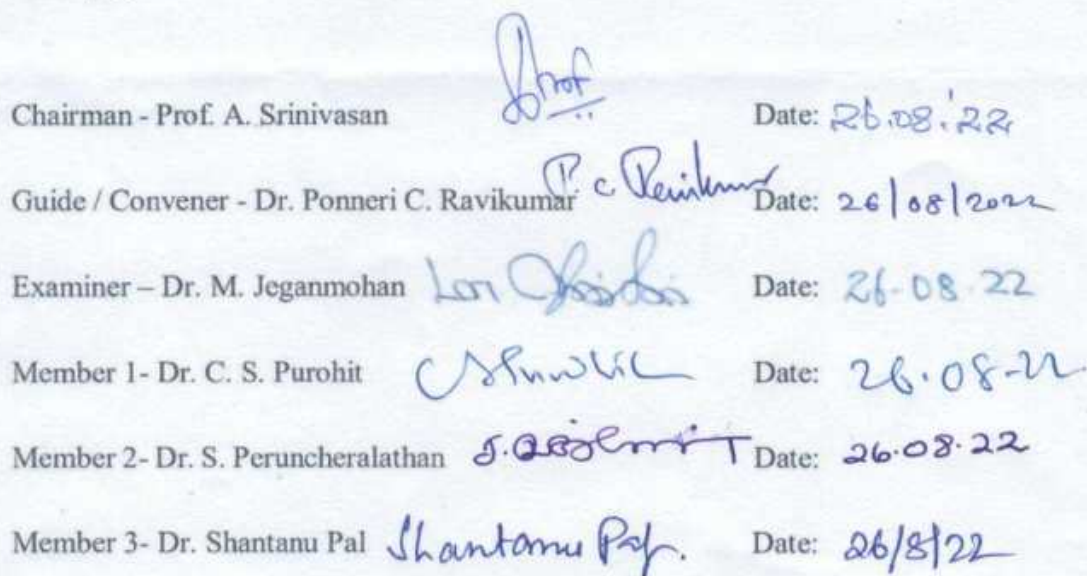 Chairman - Prof. A. Srinivasan Date: 26.08.'22
Guide / Convener - Dr. Ponneri C. Ravikumar P. C. Ravikumar Date: 26/08/2022
Examiner – Dr. M. Jeganmohan Date: 26-08-22
Member 1- Dr. C. S. Purohit Date: 26.08-22
Member 2- Dr. S. Peruncheralathan Date: 26.08.22
Member 3- Dr. Shantanu Pal Shantanu Pal. Date: 26/8/22